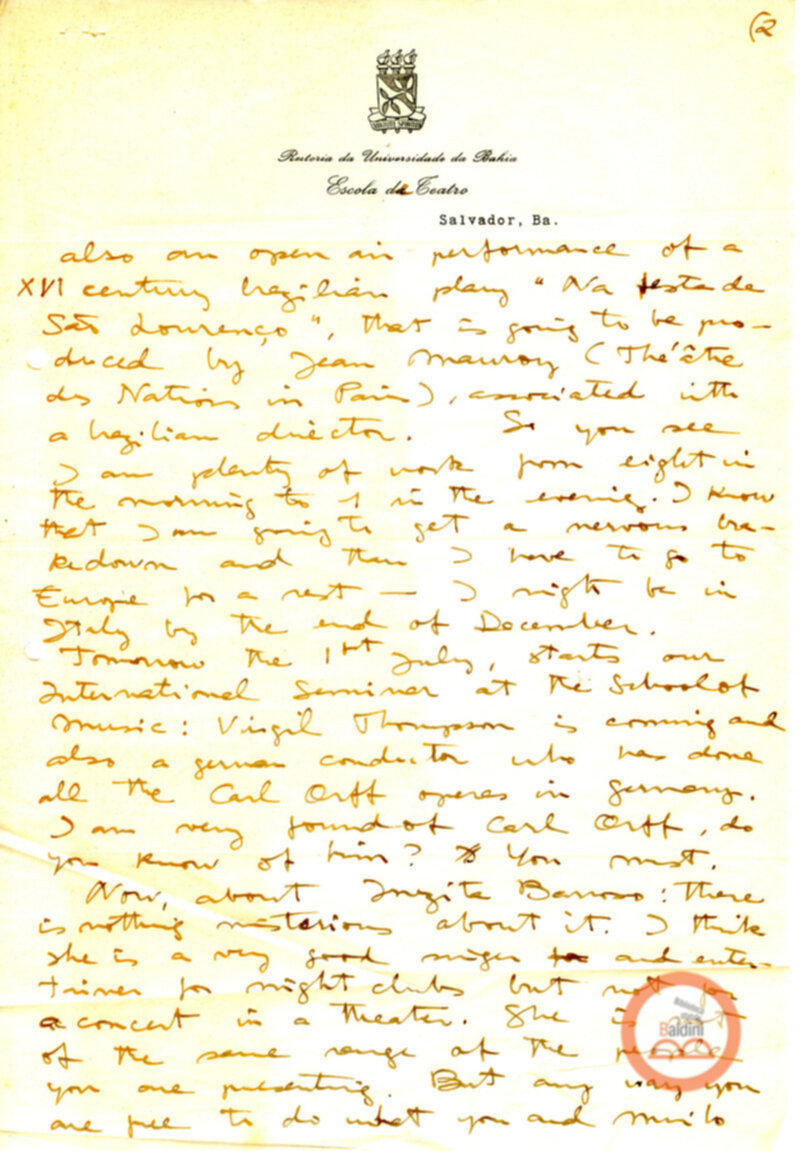 (2
Reitoria da Universidade da Bahia
Escola de Teatro
Salvador, Ba.
also an open air performance of a
XVI century brazilian play "Na festa de
São Lourenço", that is going to be pro-
duced by Jean Mauroy (Théâtre
des Nations in Paris), associated with
a brazilian director. So you see
I am plenty of work from eight in
the morning to 1 in the evening. I know
that I am going to get a nervous bra-
kedown and than I have to go to
Europe for a rest — I might be in
Italy by the end of December.
Tomorrow the 1st July, starts our
International Seminar at the School of
Music: Virgil Thompson is coming and
also a german conductor who has done
all the Carl Orff operas in Germany.
I am very found of Carl Orff, do
you know of him? You must.
Now, about Inezita Barroso: there
is nothing misterious about it. I think
she is a very good singer and enter-
tainer for night clubs but not for
a concert in a theater. She is not
of the same range of the people
you are presenting. But any way you
are free to do what you and Murilo
Biblioteca
Baldini